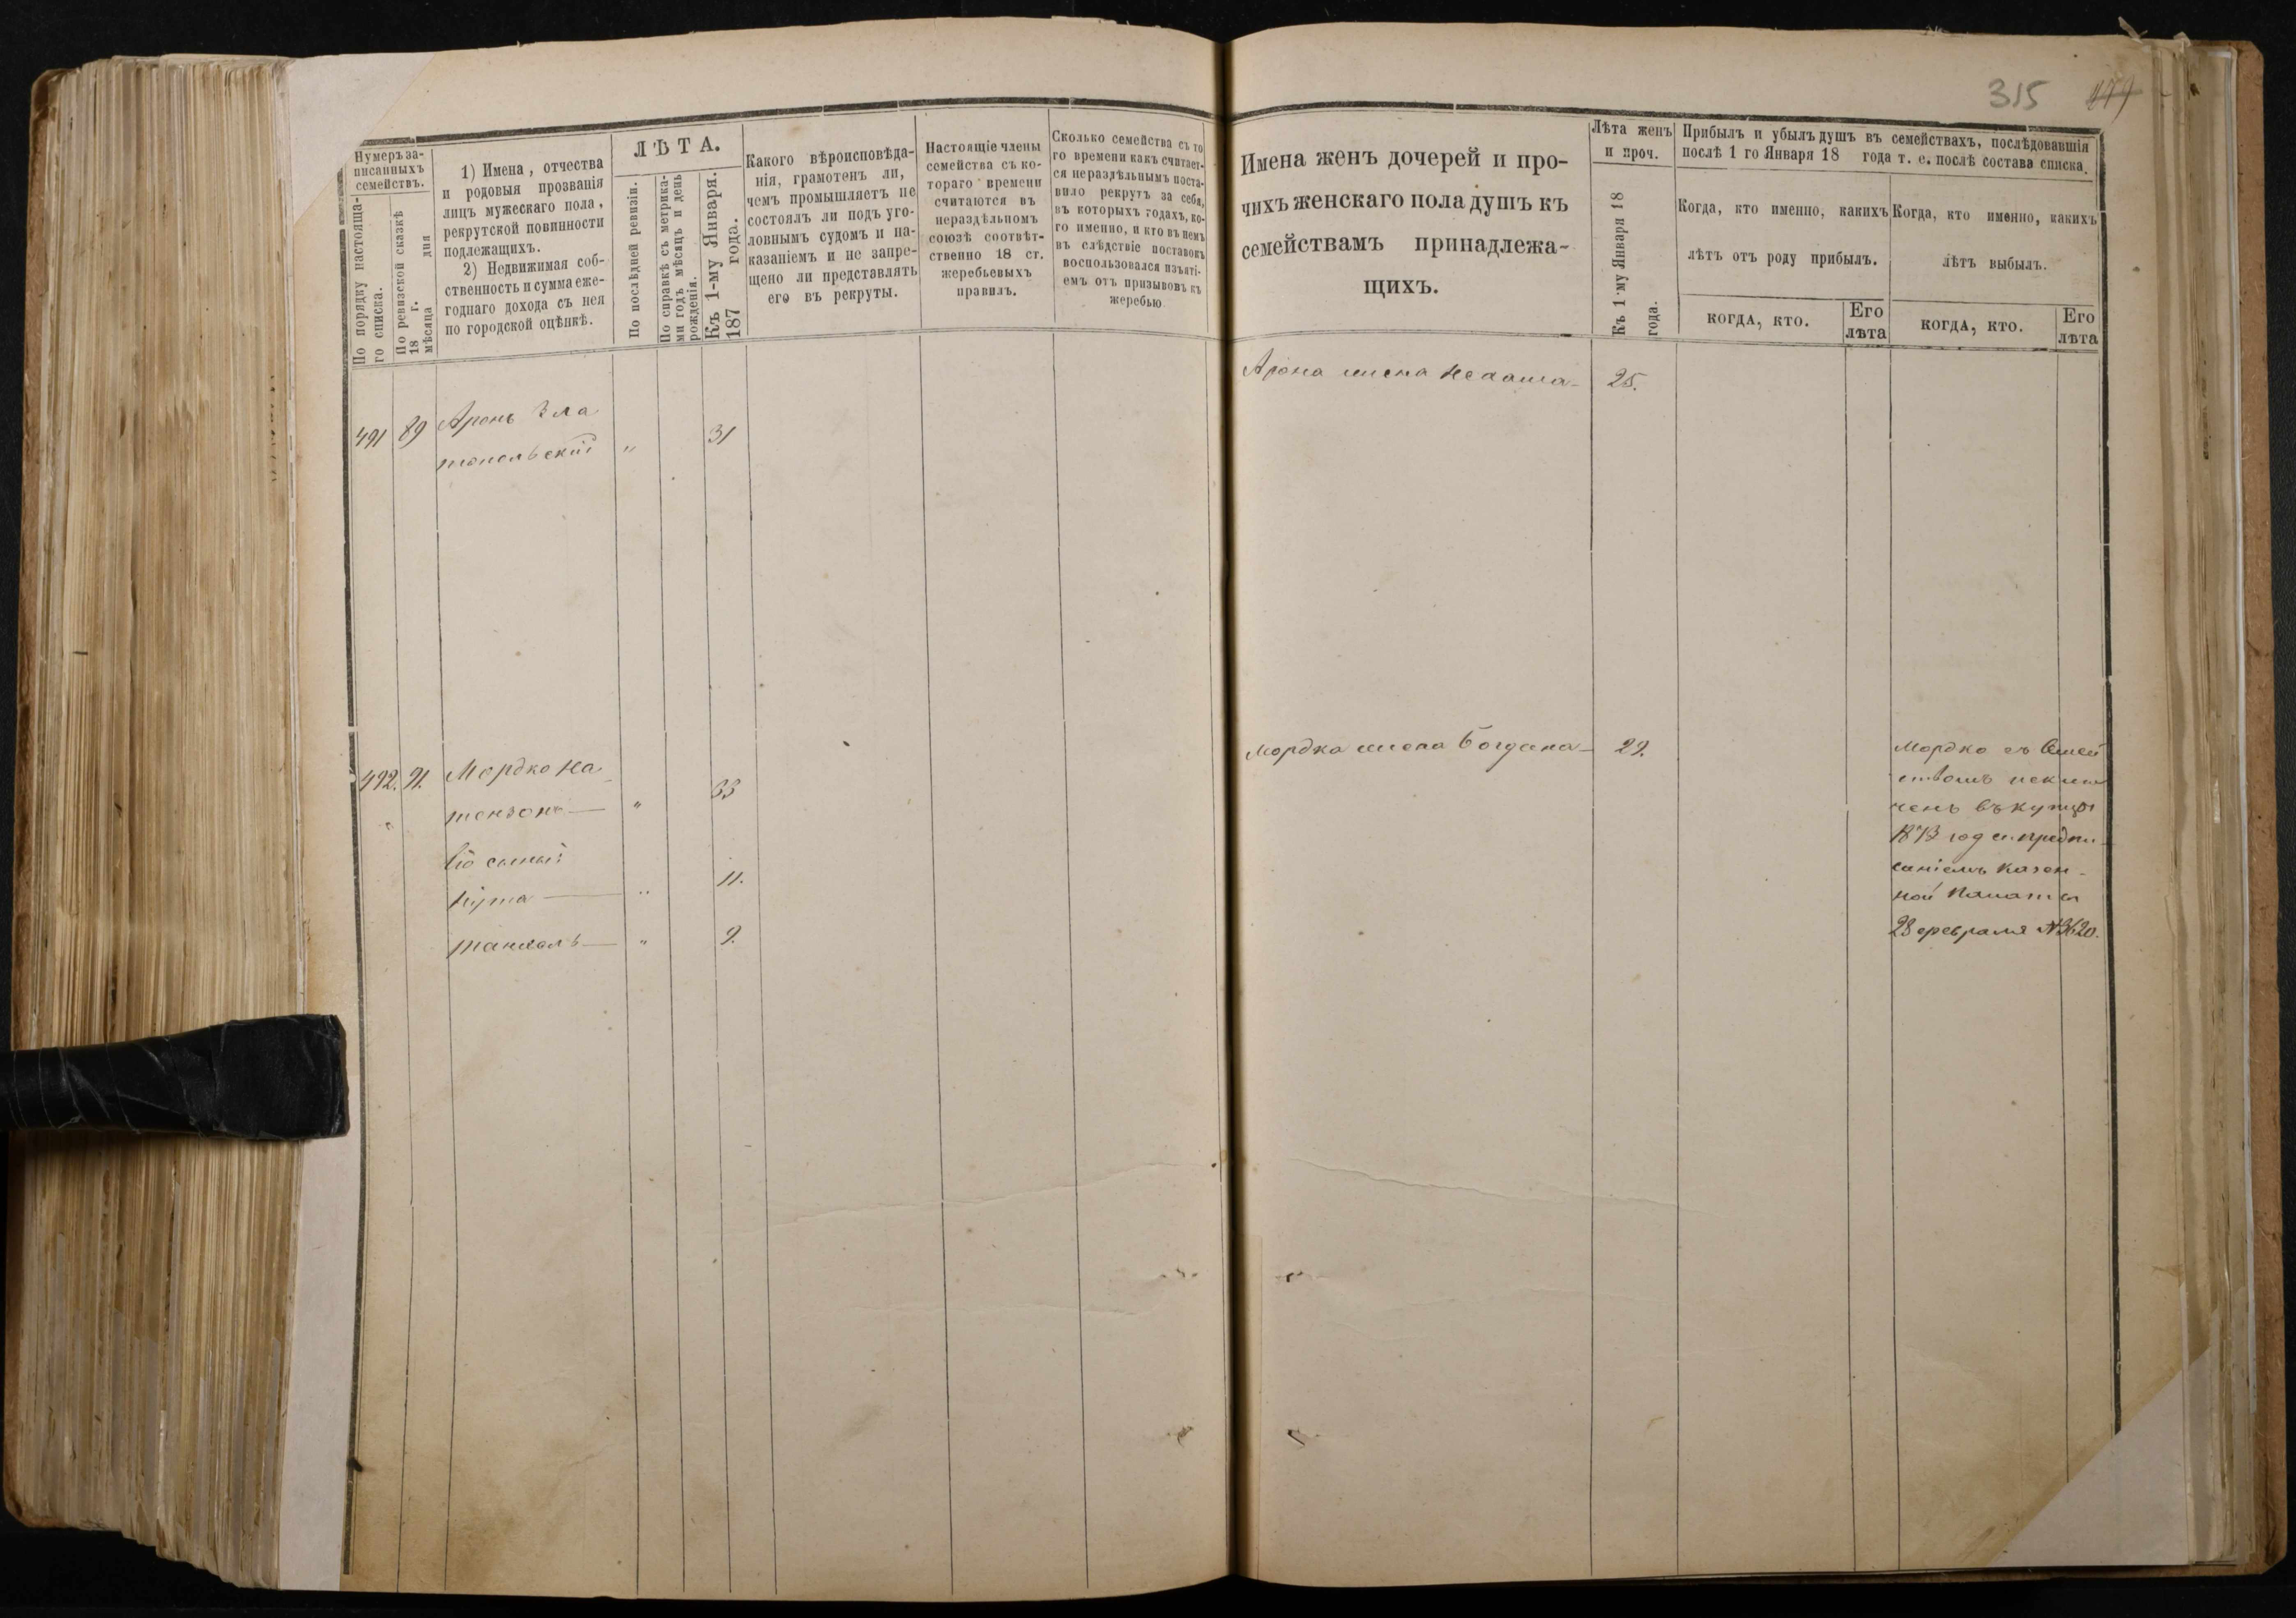 315
Нумеръ за-
писанныхъ
семействъ.
По порядку настояща-
го списка.
По ревизской сказкѣ
18 г.
мѣсяца дня
1) Имена, отчества
и родовыя прозванія
лицъ мужескаго пола,
рекрутской повинности
подлежащихъ.
2) Недвижимая соб-
ственность и сумма еже-
годнаго дохода съ нея
по городской оцѣнкѣ.
ЛѢТА.
По послѣдней ревизіи.
По справкѣ съ метрика-
ми годъ мѣсяцъ и день
рожденія.
Къ 1-му Января.
187 года.
Какого вѣроисповѣда-
нія, грамотенъ ли,
чемъ промышляетъ не
состоялъ ли подъ уго-
ловнымъ судомъ и на-
казаніемъ и не запре-
щено ли представлять
его въ рекруты.
Настоящіе члены
семейства съ ко-
тораго времени
считаются въ
нераздѣльномъ
союзѣ соотвѣт-
ственно 18 ст.
жеребьевыхъ
правилъ.
Сколько семейства съ то
го времени какъ считает-
ся нераздѣльнымъ поста-
вило рекрутъ за себя,
въ которыхъ годахъ, ко-
го именно, и кто въ немъ
въ слѣдствіе поставокъ
воспользовался изъяті-
емъ отъ призывовъ къ
жеребью
491 89 Аронъ Зла
топольскій " 31
492. 91. Мордко На
тензонъ — " 33
Его сыновья:
Нута — " 11.
Танхель — " 9.
Имена женъ дочерей и про-
чихъ женскаго пола душъ къ
семействамъ принадлежа-
щихъ.
Лѣта женъ
и проч.
Къ 1-му Января 18
года.
Прибылъ и убылъ душъ въ семействахъ, послѣдовавшія
послѣ 1 го Января 18 года т. е. послѣ состава списка.
Когда, кто именно, какихъ
лѣтъ отъ роду прибылъ.
Когда, кто именно, какихъ
лѣтъ выбылъ.
КОГДА, КТО.
Его
лѣта
КОГДА, КТО.
Его
лѣта
Арона жена Нехама — 25.
Мордка жена Богдана — 29.
Мордко съ Семей
ствомъ исклю
ченъ въ купцы
1873 год
саніемъ Казен-
ной Палаты
28 февраля № 3620.